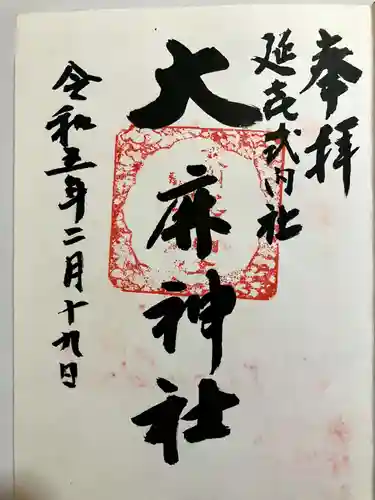 奉拝
延喜式内社
大麻神社
令和五年二月十九日